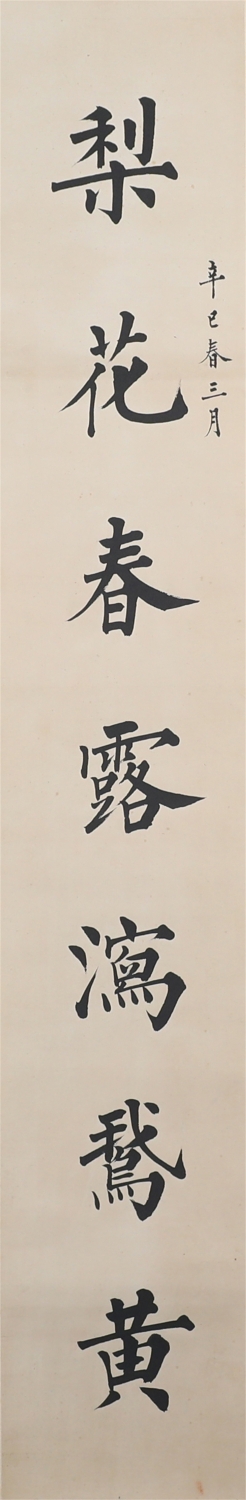 辛巳春三月
梨花春露瀉鵞黄